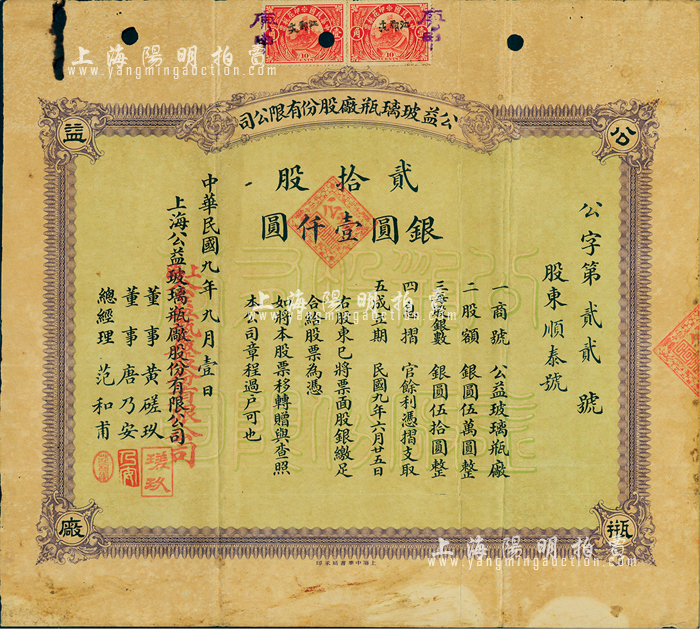 庚申
庚申
江鄂皖
江鄂皖
上海陽明拍賣
www.yangmingauction.com
公益玻璃瓶廠股份有限公司
公
益
瓶
廠
公字第貳貳號
股東順泰號
貳拾股
銀圓壹仟圓
一商號 公益玻璃瓶廠
二股額 銀圓伍萬圓整
三每股銀數 銀圓伍拾圓整
四息摺 官餘利憑摺支取
五成立期 民國九年六月廿五日
右股東已將票面股銀繳足
合給股票為憑
如將本股票移轉贈與查照
本公司章程過户可也
中華民國九年九月壹日
上海公益玻璃瓶廠股份有限公司
董事黃磋玖
董事唐乃安
總經理范和甫
上海中華書局承印
上海陽明拍賣
www.yangmingauction.com
上海陽明拍賣
www.yangmingauction.com